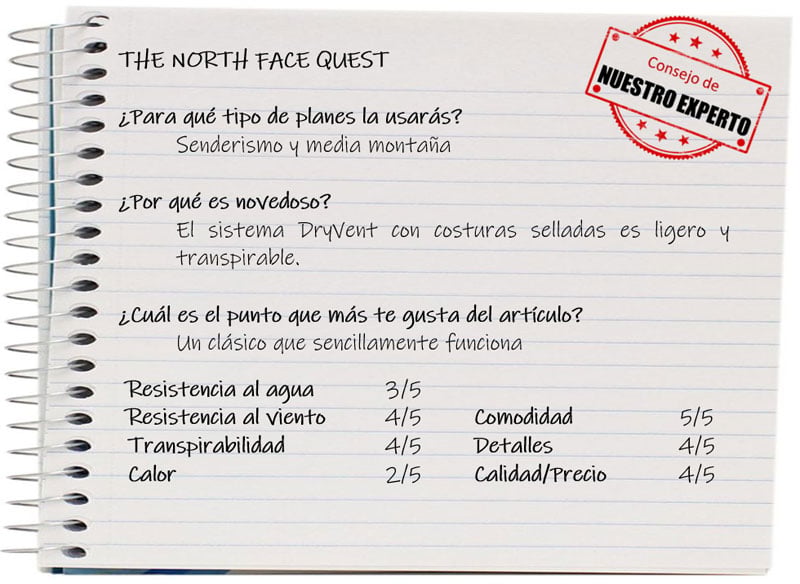 THE NORTH FACE QUEST
Consejo de
NUESTRO EXPERTO
¿Para qué tipo de planes la usarás?
Senderismo y media montaña
¿Por qué es novedoso?
El sistema DryVent con costuras selladas es ligero y
transpirable.
¿Cuál es el punto que más te gusta del artículo?
Un clásico que sencillamente funciona
Resistencia al agua 3/5
Resistencia al viento 4/5 Comodidad 5/5
Transpirabilidad 4/5 Detalles 4/5
Calor 2/5 Calidad/Precio 4/5